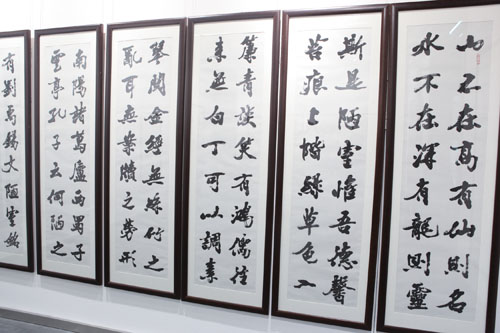 山不在高有仙則名
水不在深有龍則靈
斯是陋室惟吾德馨
苔痕上階綠草色入
簾青談笑有鴻儒往
來無白丁可以調素
琴閱金經無絲竹之
亂耳無案牘之勞形
南陽諸葛廬西蜀子
雲亭孔子云何陋之
有劉禹錫文陋室銘